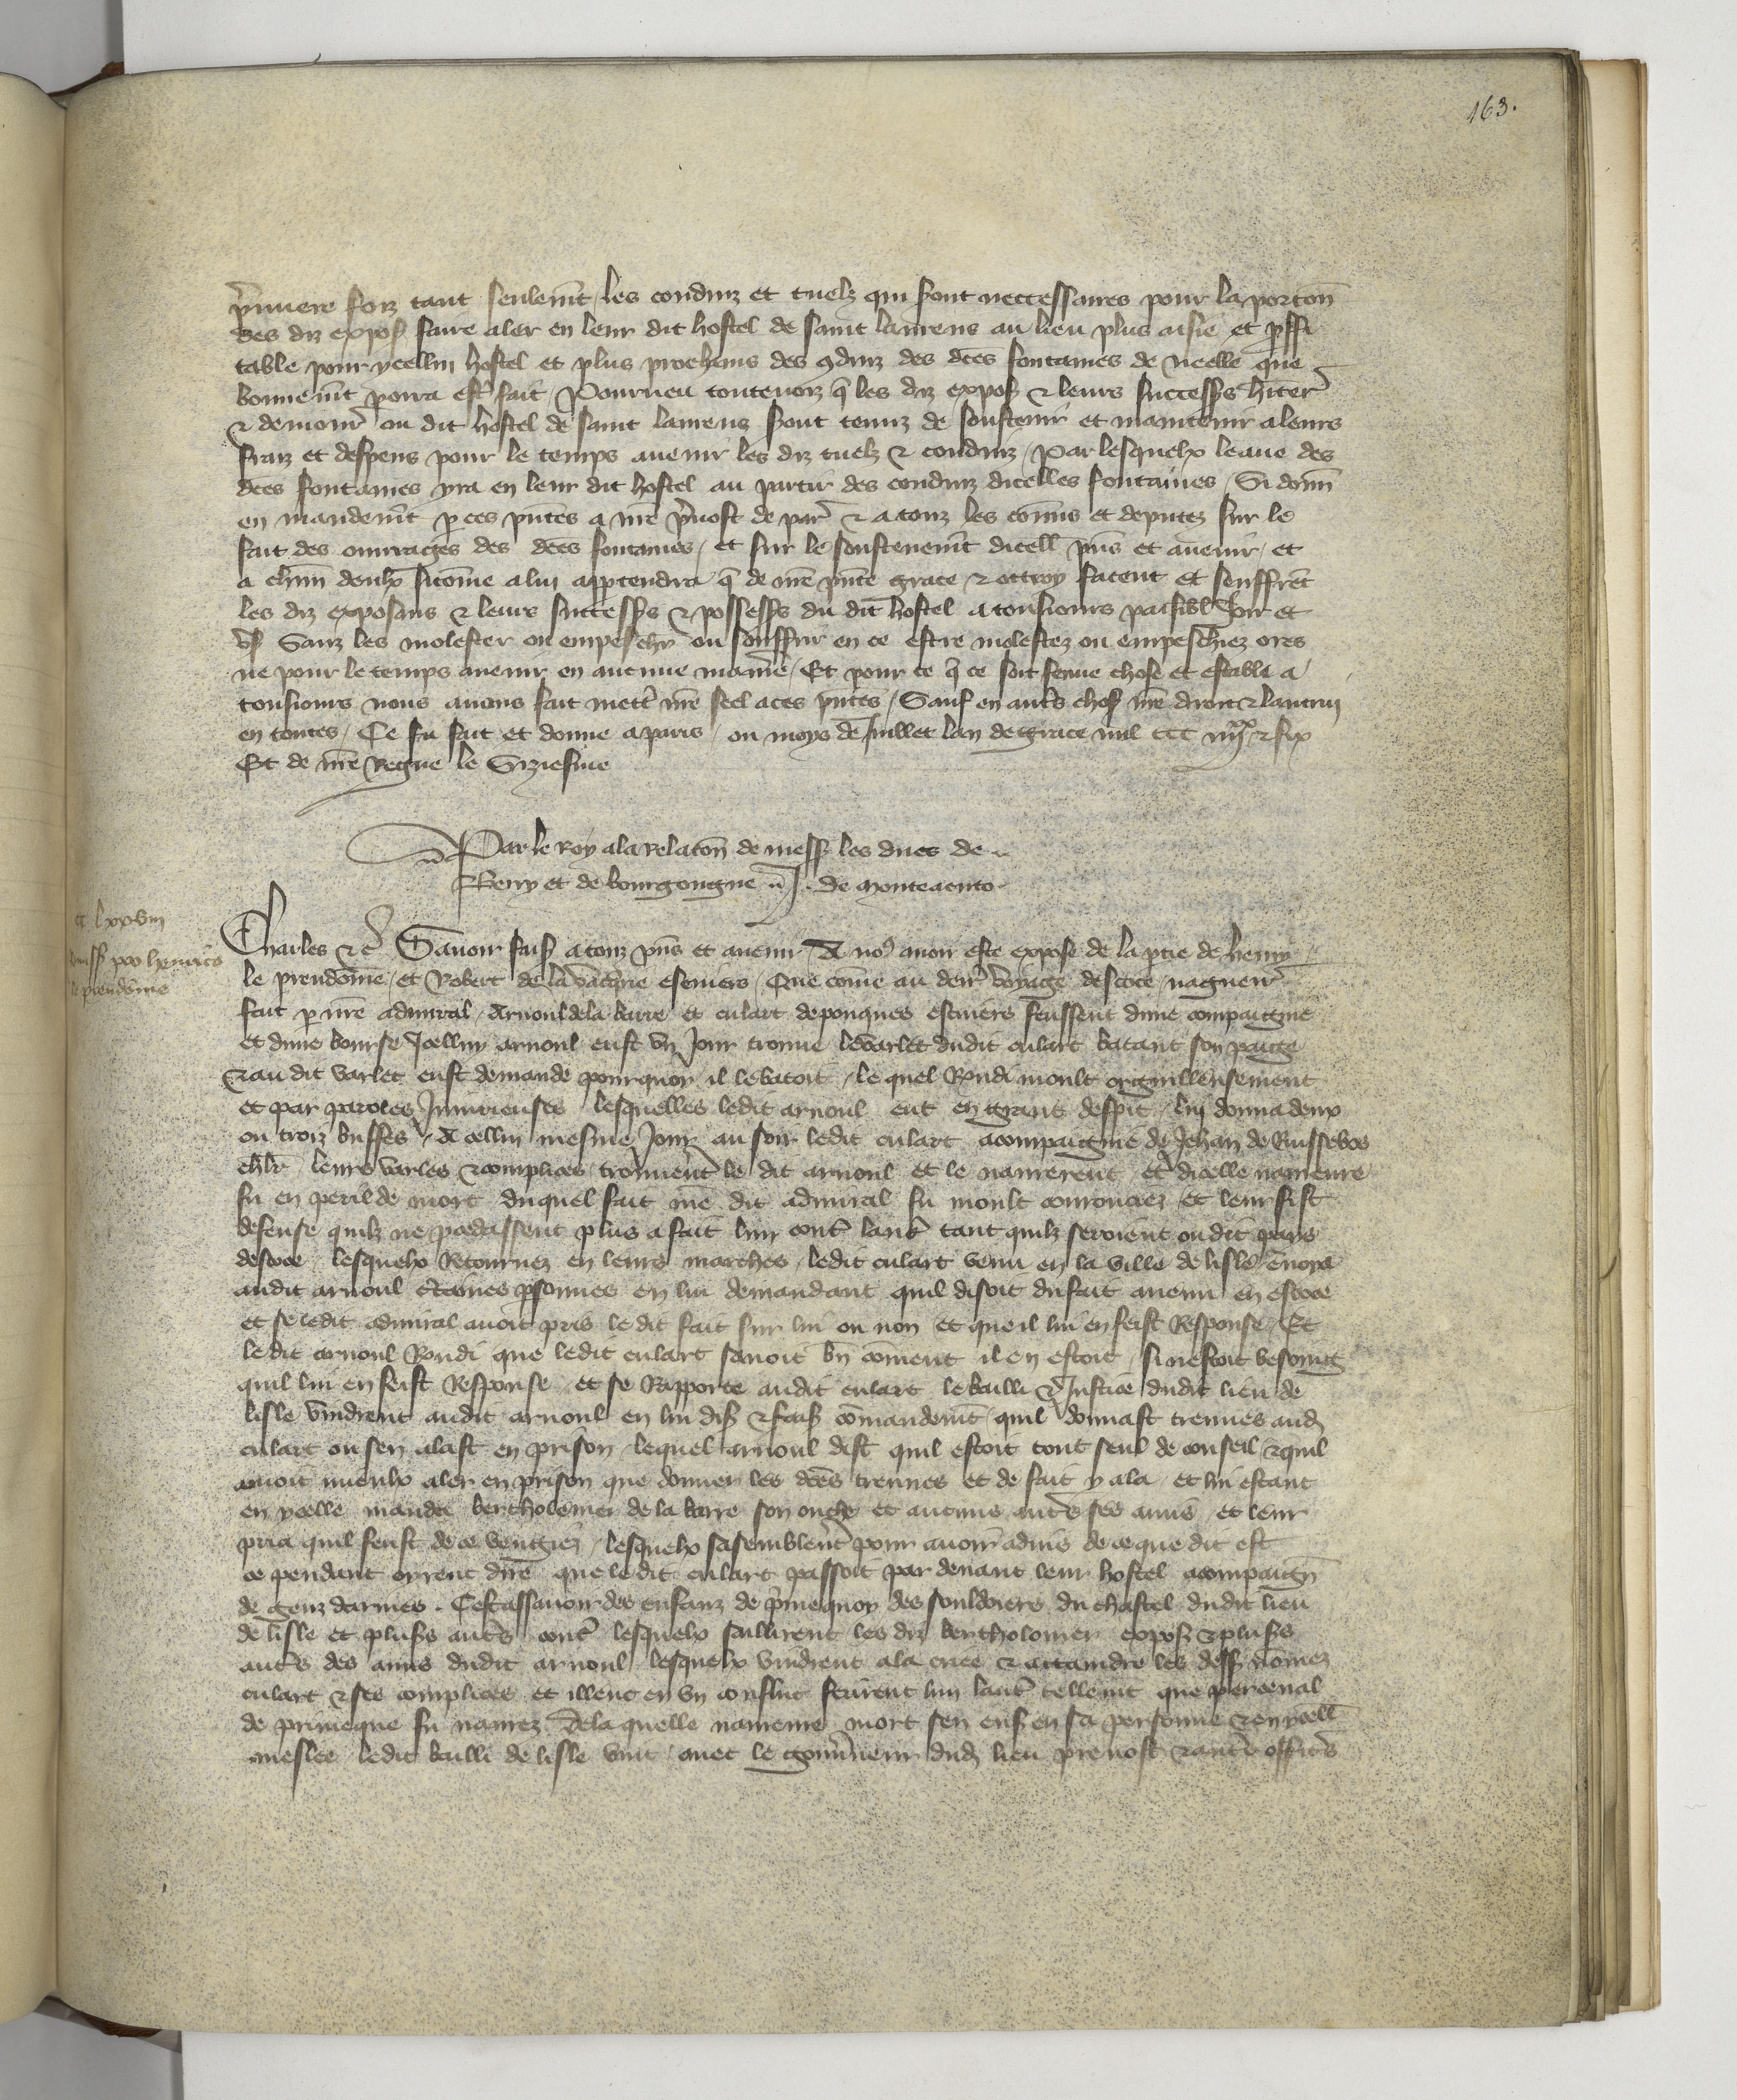 163.
p̃miere foiz tant seulem̃t les conduiz et tuelz qui sont neccessaires pour la porcoñ
des diz expos̃ faire aler en leur dit hostel de saint laurens au lieu plus aisie et ꝓffi
table pour ycellui hostel et plus prochains des ꝯduiz des dc̃es fontaines de que
bonnem̃t porra estr̃ fait / Pourueu toutevoiz q̃ les diz expos̃ & leurs success̃s hiter̃
& demour̃ ou dit hostel de saint laurens sont tenuz de soustenir et maintenir a leurs
fraiz et despens pour le temps auenir les diz tuelz & conduiz / Par lesquelx leaue des
dc̃es fontaines yra en leur dit hostel au partir des conduiz dicelles fontaines / Si donñ
en mandem̃t p ces pñtes a nr̃e p̃uost de par̃ & a touz les com̃is et deputez sur le
fait des ouurages des dc̃es fontaines / et sur le soustenem̃t dicell̃ pñs et auenir / et
a chũn deulx sicom̃e a lui apptendra q̃ de nr̃e pñte grace & ottroy facent et seuffrẽt
les diz exposans & leurs success̃s & possess̃s du dit hostel a tousiours paisibl̃ joir et
vs̃ Sanz les molester ou empescher ou souffrir en ce estre molestez ou empeschiez ores
ne pour le temps auenir en aucune manie᷑e / Et pour ce q̃ ce soit ferme chose et estable a
tousiours nous auons fait mett̃ nr̃e seel a ces pñtes / Sauf en aut̃s chos̃ nr̃e droit & lautruy
en toutes / Ce fu fait et donne a paris / ou moys de Juillet lan de grace mil ccc iiijxx & six
Et de nr̃e Regne le Siziesme
Par le Roy a la relacoñ de mess̃ les dues de
Berry et de bourgongne ~ J. de monteacuto
lxxviij
Remiss̃ pro henrico
le preudom̃e
Charles &c̃ Sauoir fais̃ a touz pñs et auenir / A noꝰ auoir este expose de la ptie de henry
le preudom̃e / et Robert de la vacq̃rie escuiers / Que com̃e au derr̃ voyage descoce / naguerr̃
fait p nr̃e admiral / Arnoul de la barre et culart de pouques escuiers feussent dune compaignie
et dune bourse Jcellui arnoul eust vn jour trouue le varlet dudit culart batant son paige
& au dit varlet eust demande pourquoy il le batoit / le quel Rñdi moult orguilleusement
et par paroles Jniurieuses lesquelles ledit arnoul eut en grant despit / lui donna deux
ou troiz buffes / A cellui mesme jour au soir ledit culart acompaignie de Jehan de Ruissebos
chlr̃ leurs varles & complices trouuerẽt le dit arnoul et le naurerent / et dicelle naureure
fu en peril de mort duquel fait nr̃e dit admiral fu moult courouciez et leur fist
defense quilz ne ꝓcedassent plus a fait lun cont̃ laut̃ tant quilz seroient ou dit pays
descoce lesquelx Retournez en leurs marches ledit culart venu en la ville de lisle enuoya
audit arnoul ct̃aines psonnes en lui demandant quil disoit du fait auenu en escoce
et se ledit admiral auoit pris le dit fait sur lui ou non et que il lui en feist Response / Et
le dit arnoul Rñdi que ledit culart sauoit bñ com̃ent il en estoit / si nestoit besoing
quil lui en feist Response et se Rapporte audit culart le bailli & Justice dudit lieu de
lisle vindrent audit arnoul en lui dis̃ & fais̃ com̃andem̃t quil donnast treuues aud̃
culart ou sen alast en prison / lequel arnoul dist quil estoit tout seul de conseil & quil
amoit mieulx aler en prison que donner les dc̃es treuues et de fait y ala / et lui estant
en ycelle manda bertholemer de la barre son oncle et aucuns aut̃s ses amis / et leur
pria quil feust de ce vengiez / lesquelx sasemblerẽt pour auoir aduis de ce que dit est
ce pendant oyrent dire que le dit culart passoit par deuant leur hostel acompaigñ
de genz darmes. Cestassauoir des enfanz de p̃mequoy des souldoiers du chastel dudit lieu
de lisle et plus̃s aut̃s cont̃ lesquelx saillirent les diz bertholomer expos̃ & plus̃s
aut̃s des amis dudit arnoul lesquelx vindrent a la cree & actaindre les dess̃ nom̃ez
culart & ses complices et illeuc en vn conflict ferirent lun laut̃ tellem̃t que perceual
de primeque fu naurez De la quelle naureure mort sen ens̃ en sa personne & en ycell̃
meslee ledit bailli de lisle vint / auec le gouũneur dud̃ lieu preuost & aut̃s offic̃s